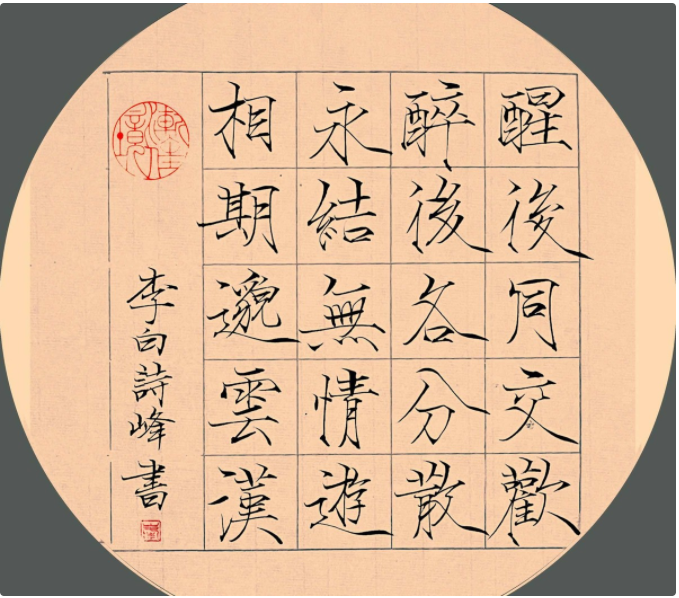 醒後同交歡
醉後各分散
永結無情遊
相期邈雲漢
李白詩峰書